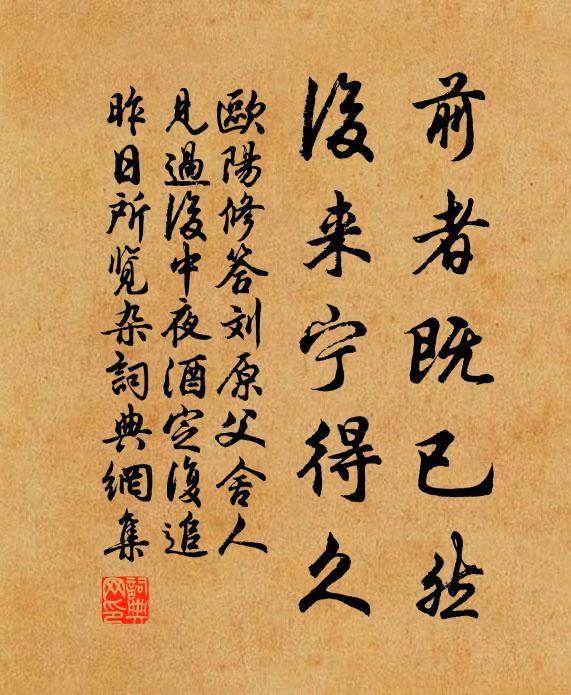 前者既已然
後来宁得久
歐陽修答刘原父舍人
見過後中夜酒定復追
昨日所覧杂詞典網集
詞典网印